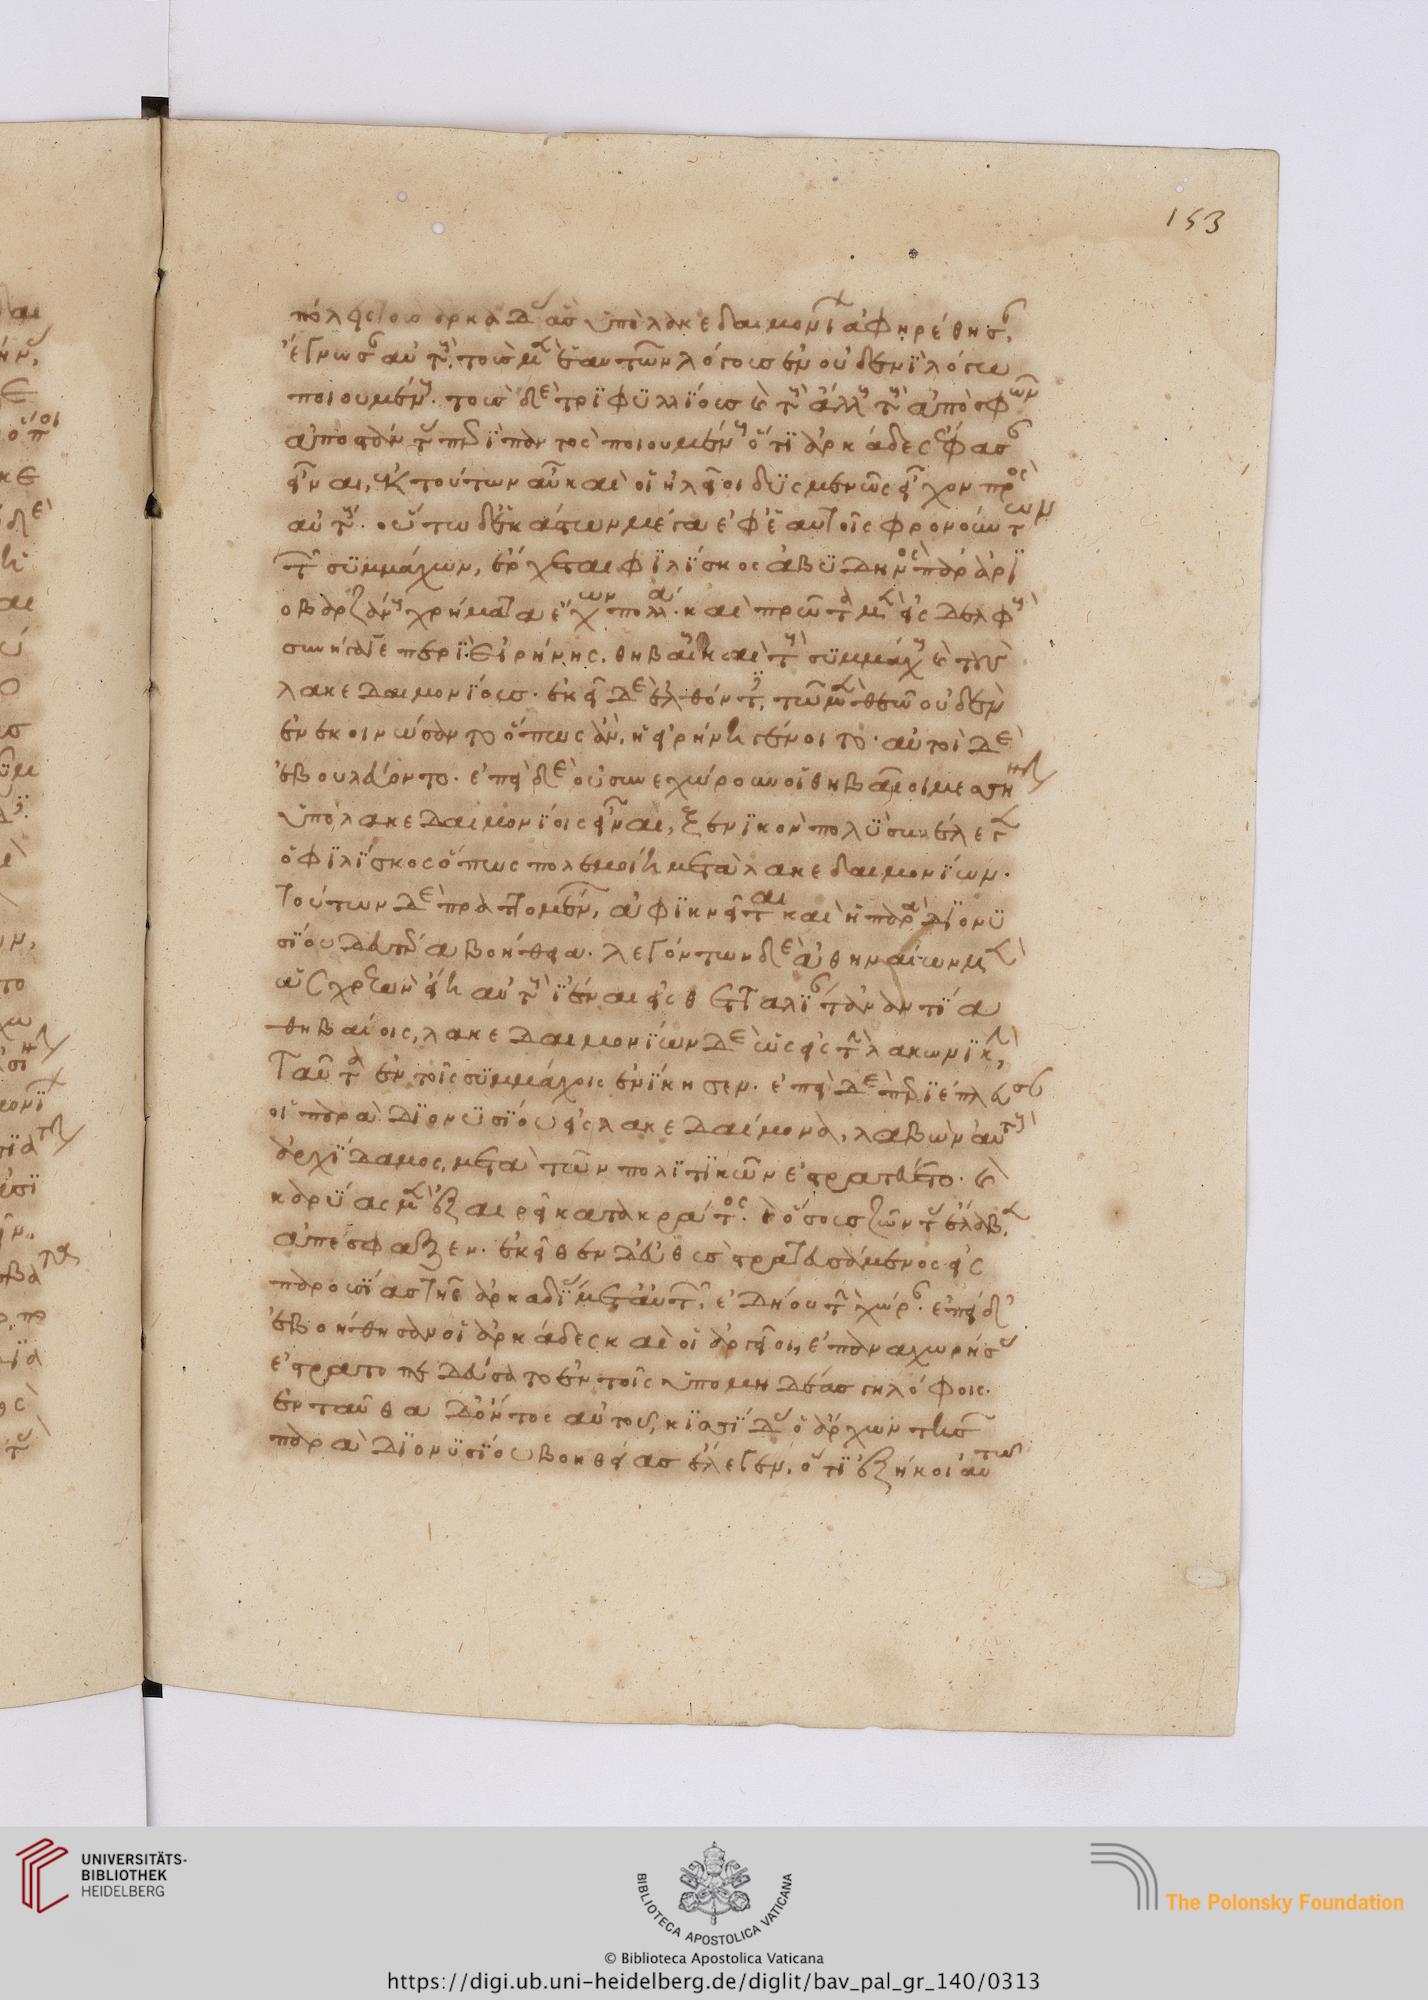 πόλεις ἃς ἀρκάδας ὑπὸ λακεδαιμονίων ἀφηρέθησαν,
ἔγνωσαν αὐτοὺς τοὺς μὲν ἑαυτῶν λόγους ἐν οὐδενὶ λόγω
ποιουμένους. τοὺς δὲ τριφυλλίους καὶ τοὺς ἄλλους τοὺς ἀπὸ σφῶν
ἀποστάντας περὶ παντὸς ποιουμένους ὅτι ἀρκάδες ἔφασαν
εἶναι, ἐκ τούτων αὖ καὶ οἱ ἠλεῖοι δυσμενῶς εἶχον πρὸς
αὐτούς. οὕτω δ' ἑκάστων μέγα ἐφ' ἑαυτοῖς φρονούντων
τῶν συμμάχων, ἔρχεται φιλίσκος ἀβυδηνὸς παρ' ἀρι
οβαρζάνους χρήματα ἔχων πολλά. καὶ πρῶτα μὲν εἰς δελφοὺς
συνήγαγε περὶ εἰρήνης. θηβαίους καὶ τοὺς συμμάχους καὶ τοὺς
λακεδαιμονίους. ἐκεῖ δὲ ἐλθόντες, τῶ μὲν θεῶ οὐδὲν
ἐνεκοινώσαντο ὅπως ἂν ἡ εἰρήνη γένοιτο. αὐτοὶ δὲ
ἐβουλεύοντο. ἐπεὶ δὲ οὐ συνεχώρουν οἱ θηβαῖοι μεσήνην
ὑπὸ λακεδαιμονίοις εἶναι, ξενικὸν πολὺ συνέλεγεν
ὁ φιλίσκος ὅπως πολεμοίη μετὰ λακεδαιμονίων.
τούτων δὲ πραττομένων, ἀφικνεῖται καὶ ἡ παρὰ διονυ
σίου δευτέρα βοήθεια. λεγόντων δὲ ἀθηναίων μὲν
ὡς χρεὼν εἴη αὐτοὺς ἰέναι εἰς θετταλίαν τἀναντία
θηβαίοις, λακεδαιμονίων δὲ ὡς εἰς τὴν λακωνικήν,
ταῦτα ἐν τοῖς συμμάχοις ἐνίκησεν. ἐπεὶ δὲ περιέπλευσαν
οἱ παρὰ διονυσίου εἰς λακεδαίμονα, λαβὼν αὐτοὺς
ἀρχίδαμος, μετὰ τῶν πολιτικῶν ἐστρατεύετο. καὶ
καρύας μὲν ἐξαιρεῖ κατὰ κράτος. καὶ ὅσους ζῶντας ἔλαβεν,
ἀπέσφαξεν. ἐκεῖθεν δ' εὐθὺς στρατευσάμενος εἰς
παροσίας τῆς ἀρκαδίας μετ' αὐτῶν, ἐδήου τὴν χώραν. ἐπεὶ δ'
ἐβοήθησαν οἱ ἀρκάδες καὶ οἱ ἀργεῖοι, ἐπαναχωρήσας
ἐστρατοπεδεύσατο ἐν τοῖς ὑπὸ μηδέας γηλόφοις.
ἐνταῦθα δ' ὄντος αὐτοῦ, κισσίδας ὁ ἄρχων τῆς
παρὰ διονυσίου βοηθείας ἔλεγεν, ὅτι ἐξήκοι αὐτῶ
153
UNIVERSITÄTS-
BIBLIOTHEK
HEIDELBERG
BIBLIOTECA APOSTOLICA VATICANA
The Polonsky Foundation
© Biblioteca Apostolica Vaticana
https://digi.ub.uni-heidelberg.de/diglit/bav_pal_gr_140/0313